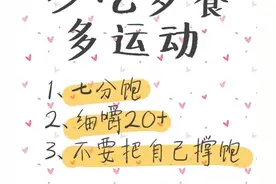 少吃多餐
多运动
1、七分饱
2、细嚼20+
3、不要把自己撑饱